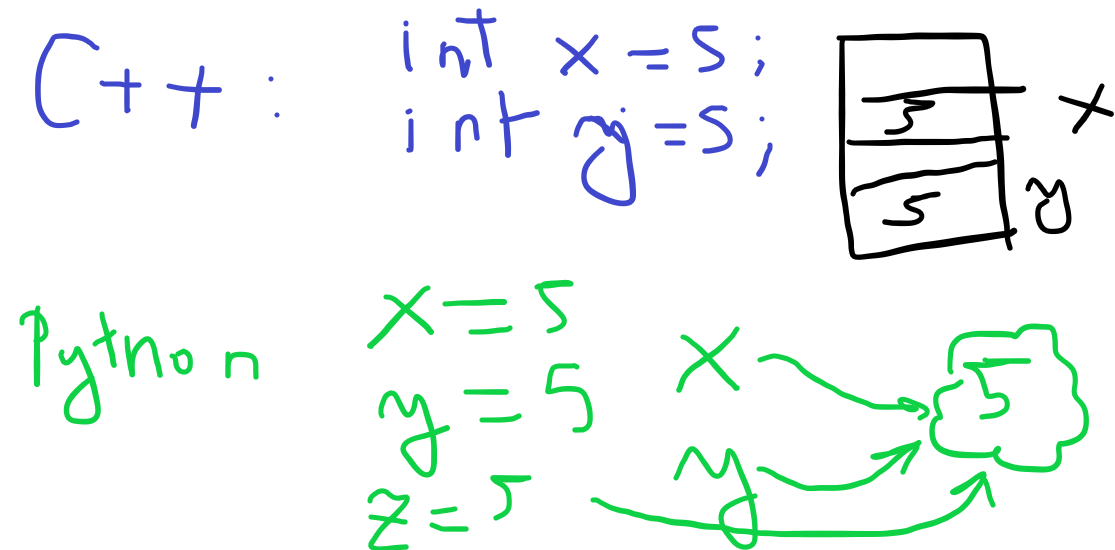 C++ :
int x = 5;
int y = 5;
5 x
5 y
Python
x = 5
y = 5
z = 5
x
y
5